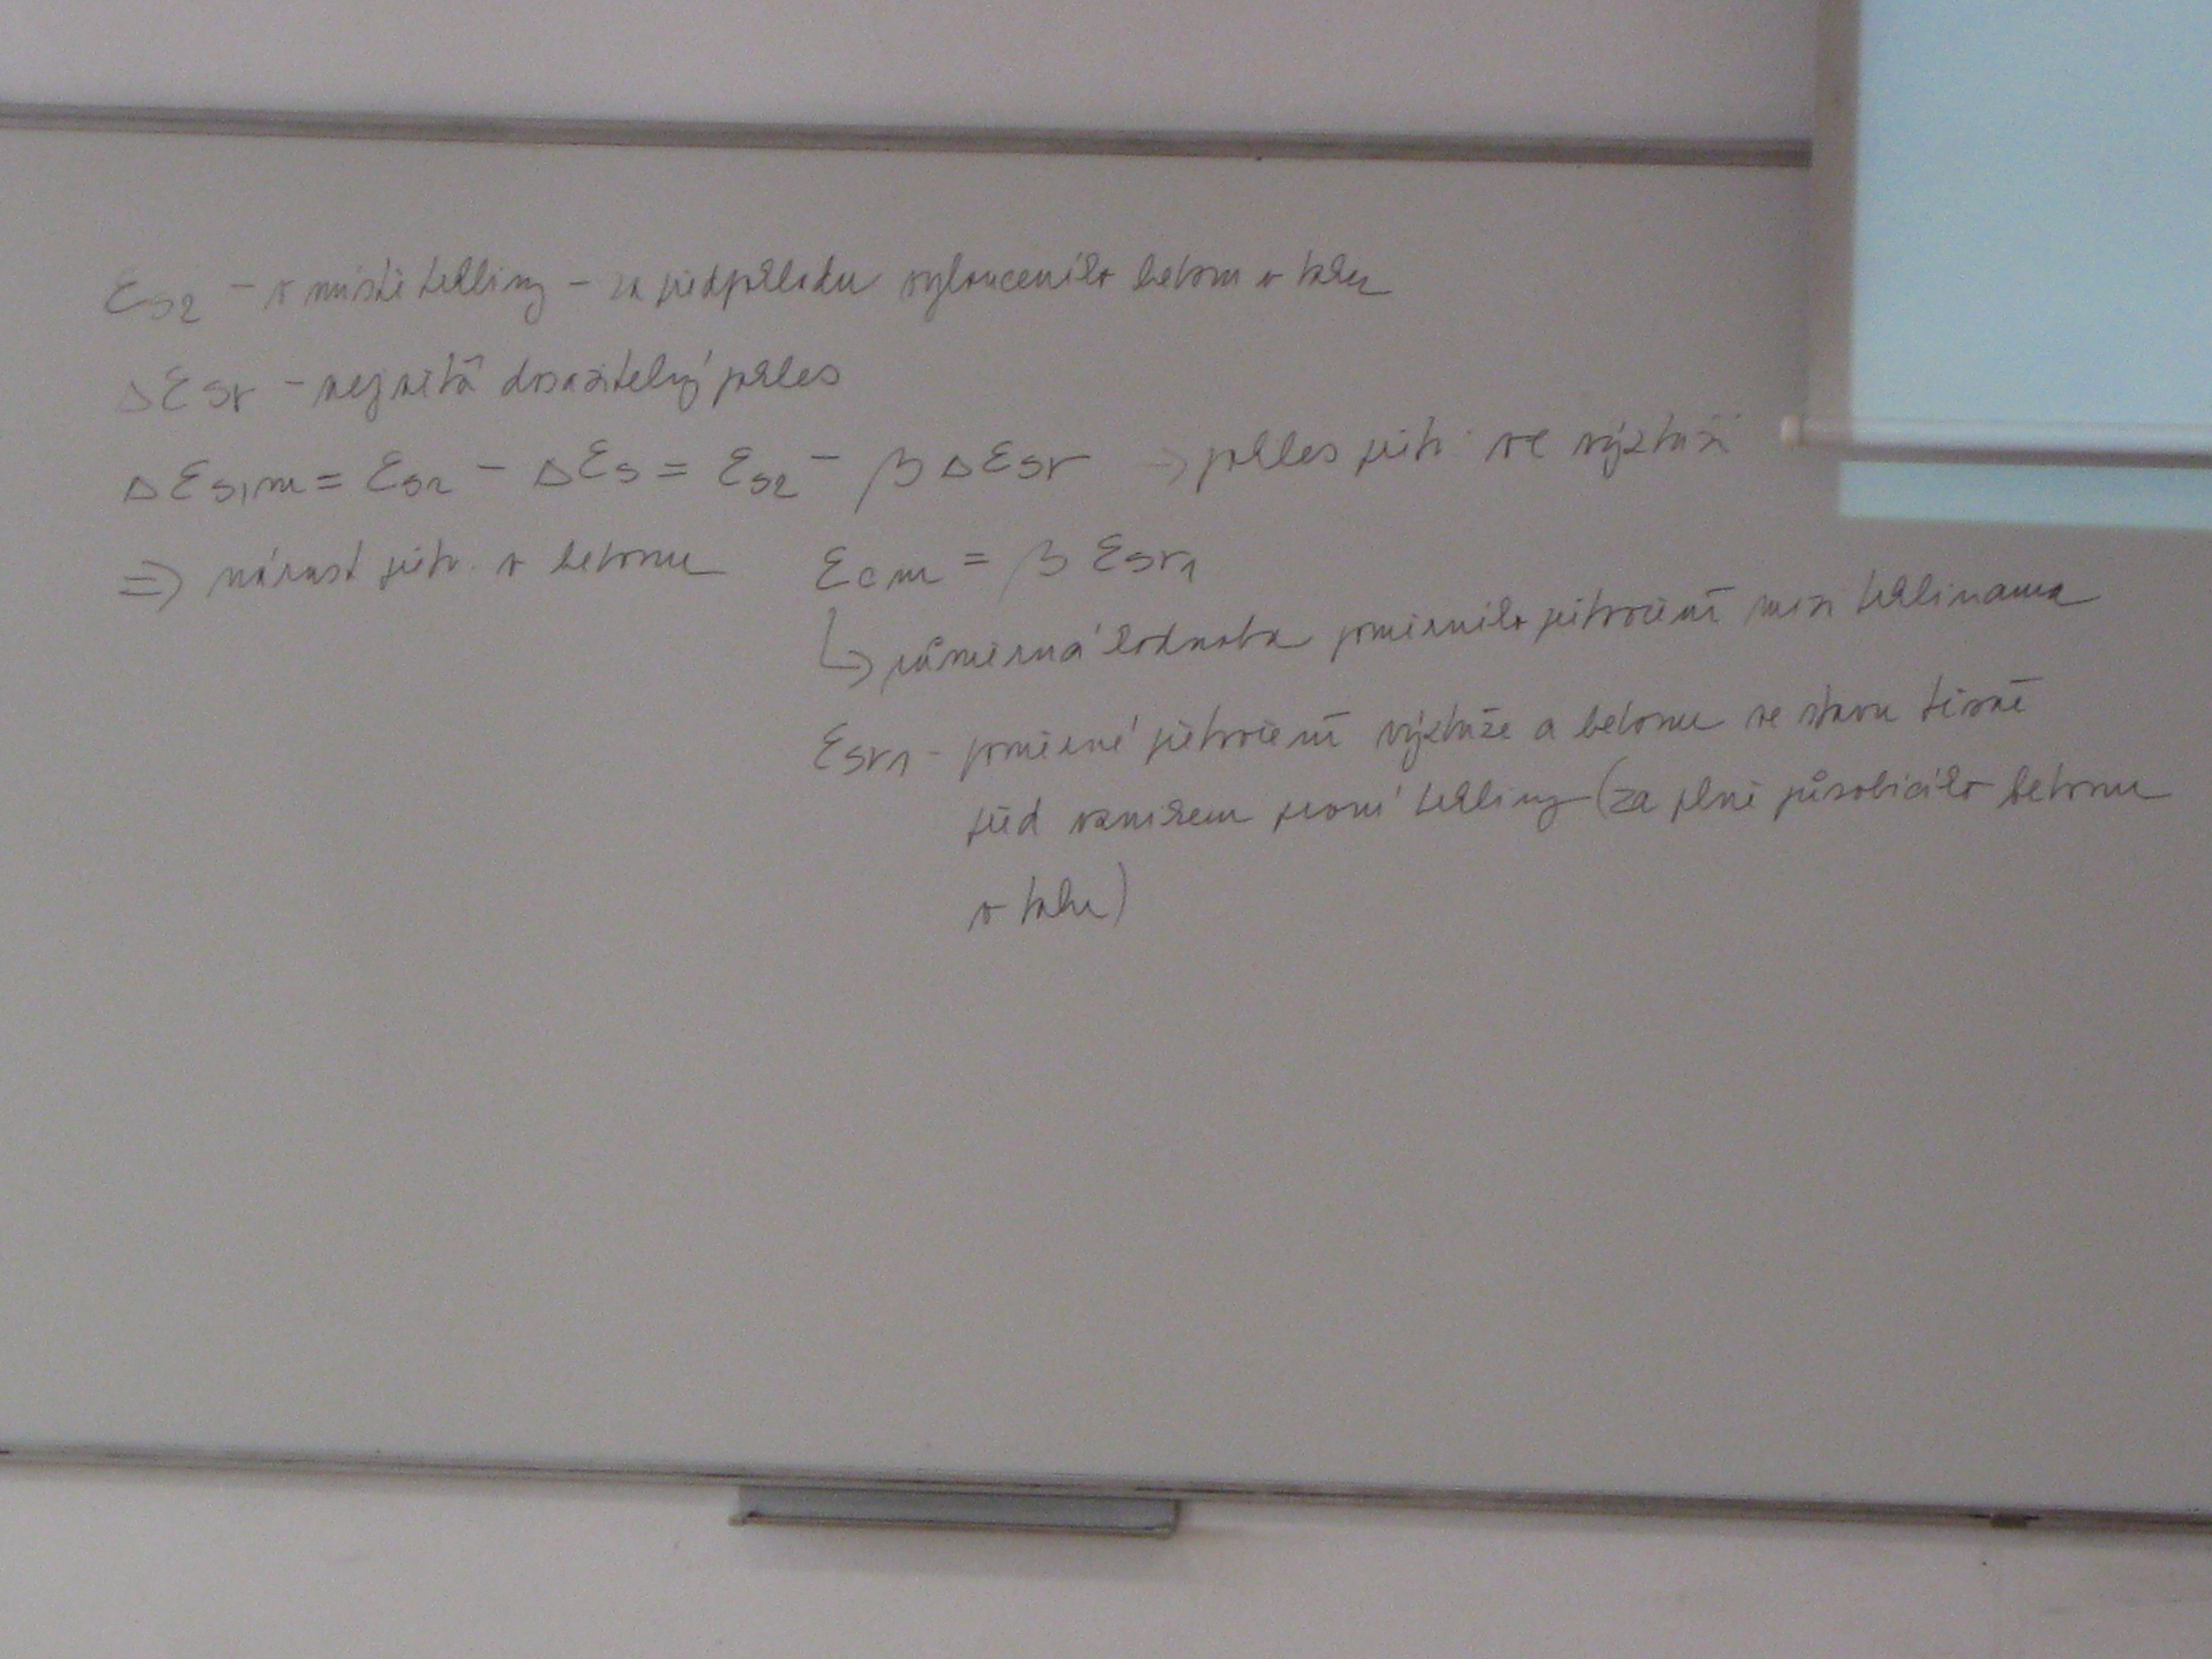 εs2 – v místě trhliny – za předpokladu vyloučeného betonu v tahu
Δεsr – největší dosažitelný pokles
Δεs,m = εs2 – Δεs = εs2 – β Δεsr → pokles přetv. ve výztuži
⇒ nárust přetv. v betonu εcm = β εsr1
↳ průměrná hodnota poměrného přetvoření mezi trhlinama
εsr1 – poměrné přetvoření výztuže a betonu ve stavu těsně
před vznikem první trhliny (za plně působícího betonu
v tahu)